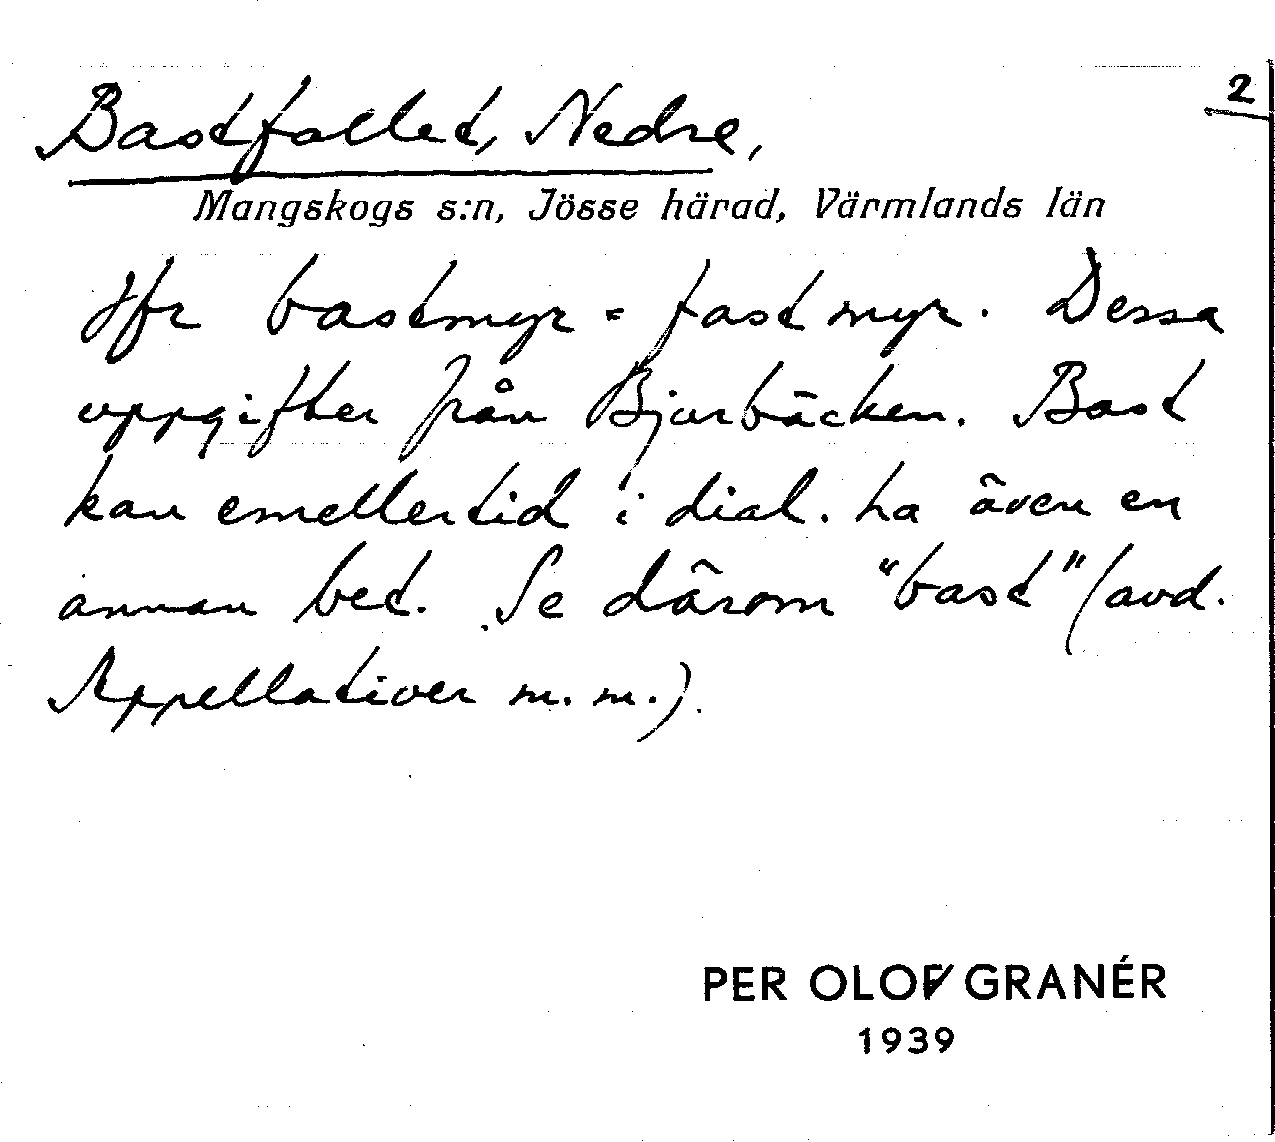 2
Bastfallet, Nedre,
Mangskogs s:n, Jösse härad, Värmlands län
Jfr bastmyr = fastmyr. Dessa
uppgifter från Bjurbäcken. Bast
kan emellertid i dial. ha även en
annan bet. Se därom "bast" (avd.
Appellativer m. m.).
PER OLOF GRANÉR
1939